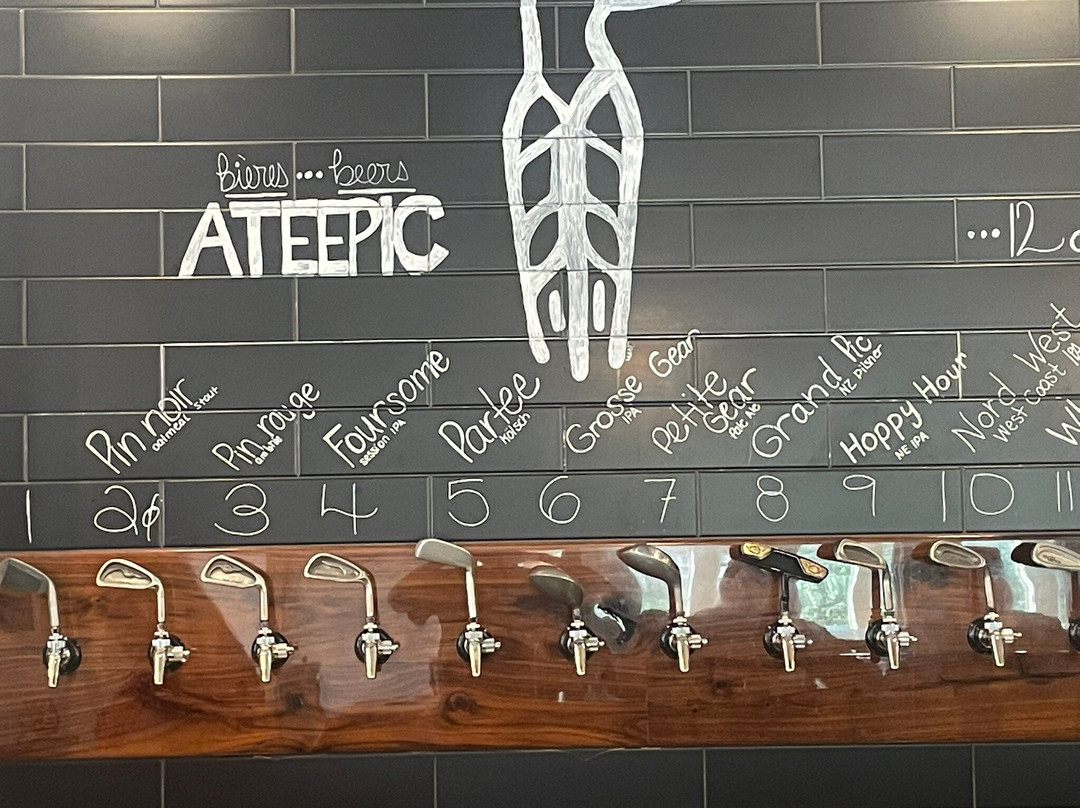 bières ... beers
ATEEPIC
...12
Pin noir
oatmeal stout
Pin rouge
ambrée
Foursome
session IPA
Partee
Kölsch
Grosse Gear
IPA
Petite Gear
Pale Ale
Grand Pic
NZ Pilsner
Hoppy Hour
NE IPA
Nord West
West Coast IPA
1 2 3 4 5 6 7 8 9 10 11